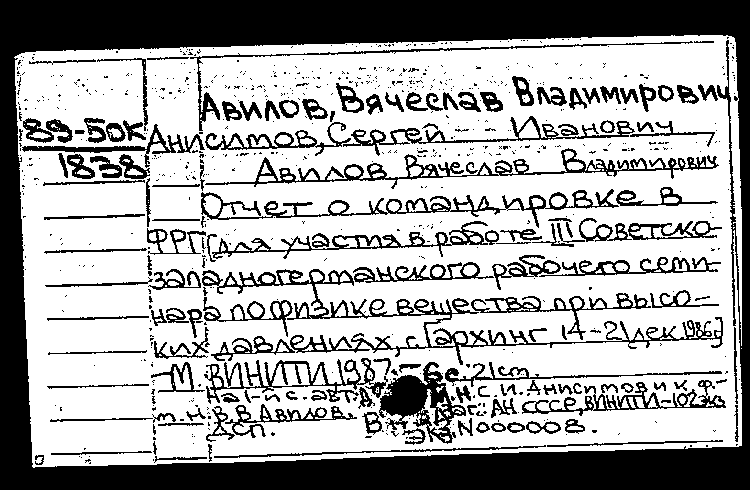 Авилов, Вячеслав Владимирович.
89-50К
1838
Анисимов, Сергей Иванович,
Авилов, Вячеслав Владимирович
Отчет о командировке в
ФРГ [для участия в работе III Советско-
западногерманского рабочего семи-
нара по физике вещества при высо-
ких давлениях, с. Гархинг, 14-21 дек. 1986г.]
- М. ВИНИТИ, 1987. - 6 с.; 21 см.
На 1-й с. авт.: М.Н. С.И. Анисимов и к.ф.-
м.н. В.В. Авилов. АН СССР, ВИНИТИ - 102 экз
Дсп. Экз. N000008.